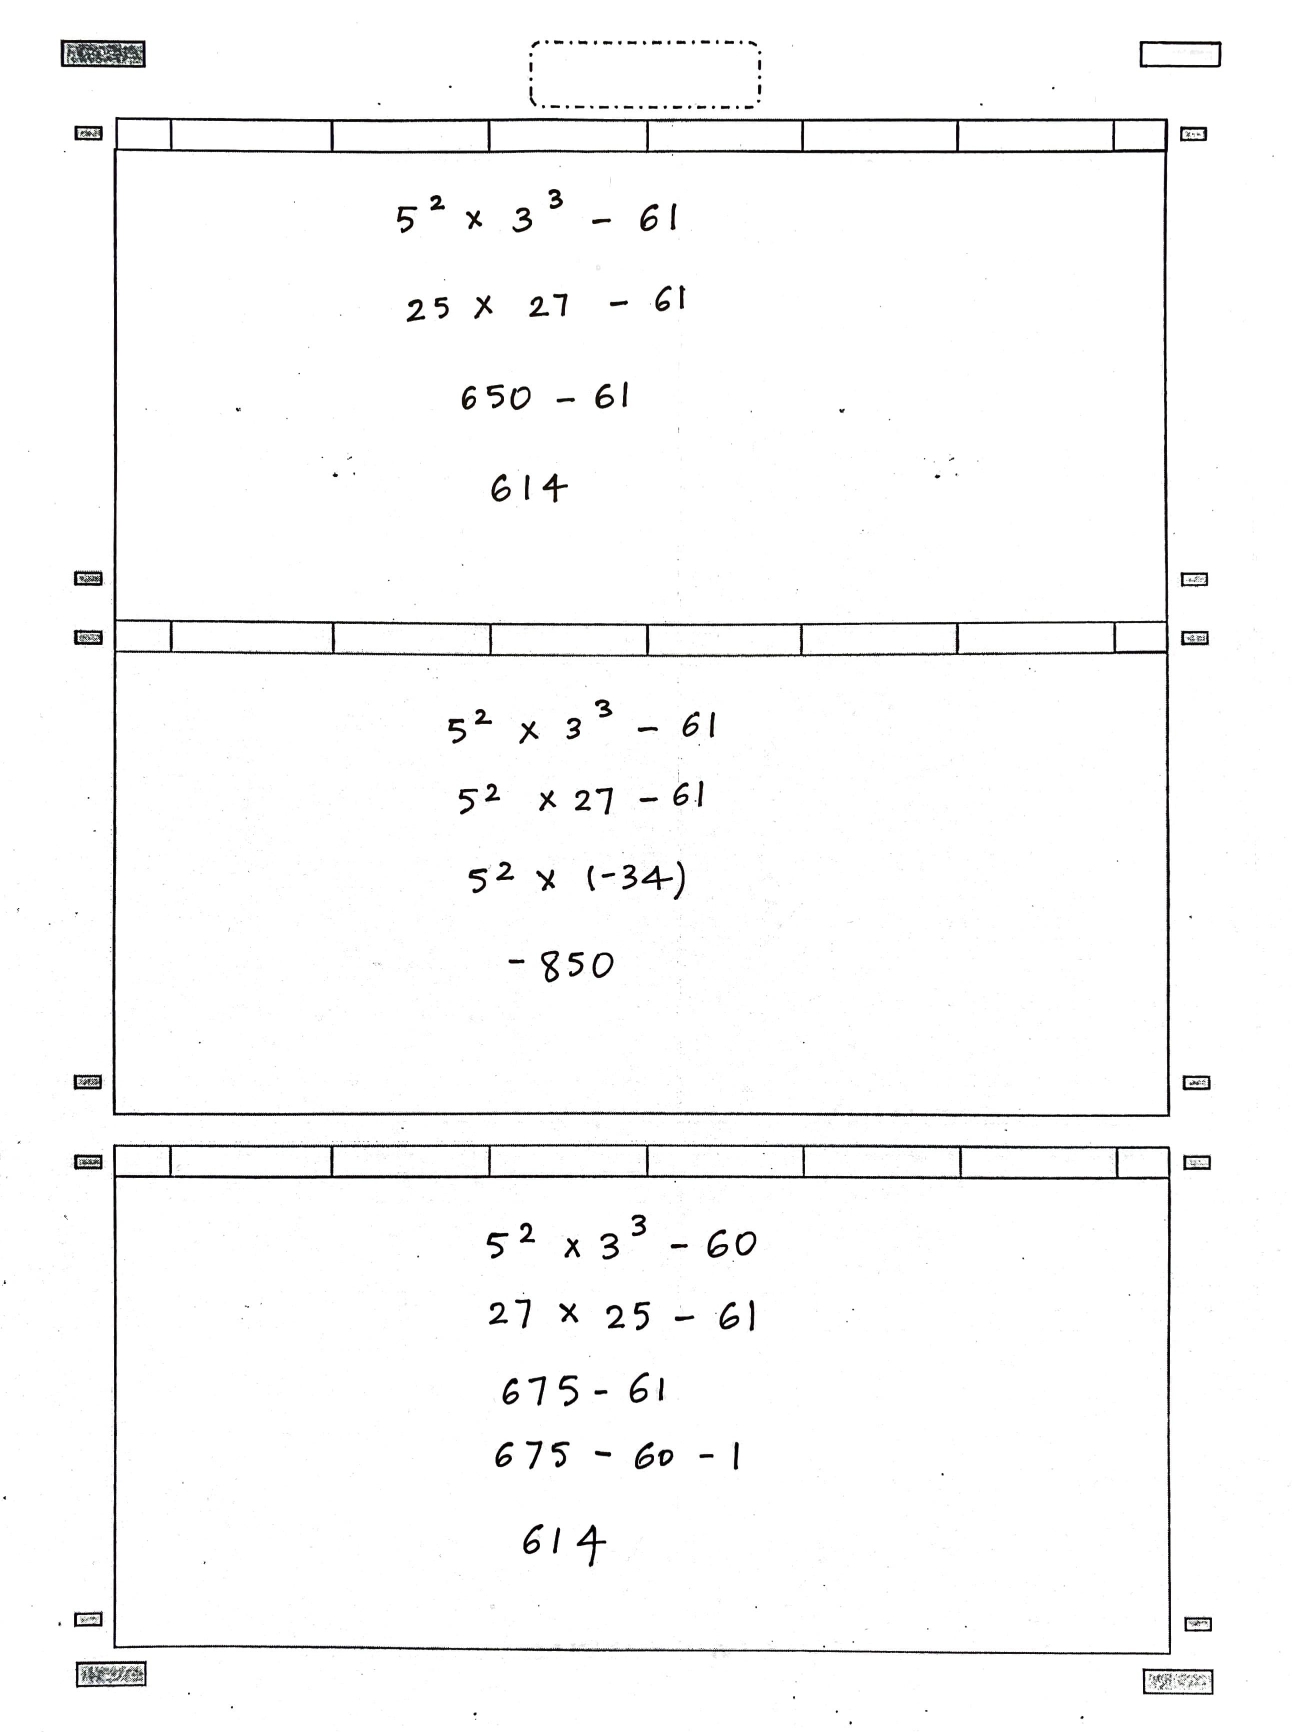 5² × 3³ – 61
25 × 27 – 61
650 – 61
614
5² × 3³ – 61
5² × 27 – 61
5² × (-34)
-850
5² × 3³ – 60
27 × 25 – 61
675 – 61
675 – 60 – 1
614